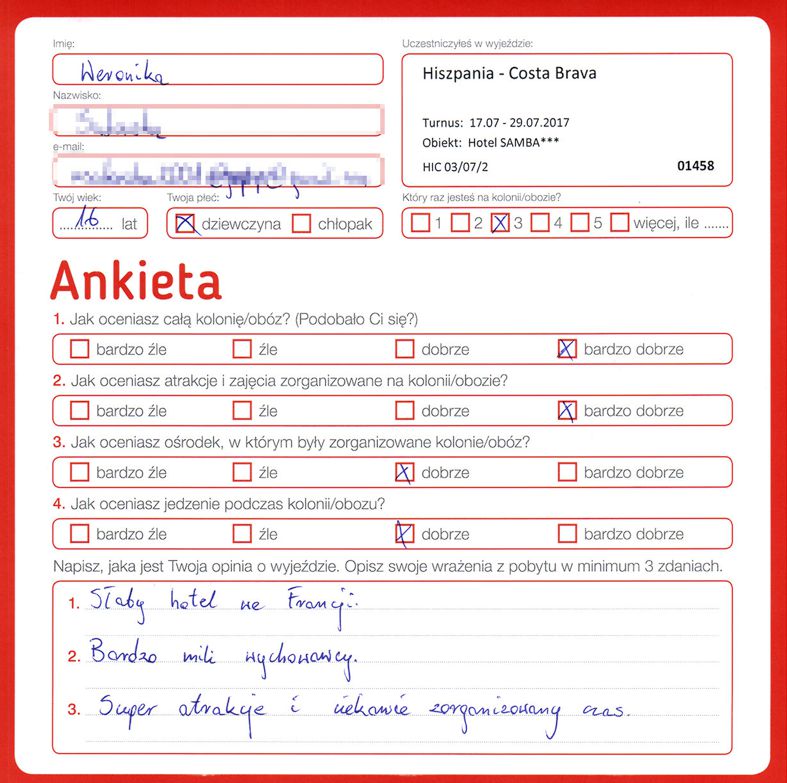 Imię:
Weronika
Uczestniczyłeś w wyjeździe:
Hiszpania - Costa Brava
Turnus: 17.07 - 29.07.2017
Obiekt: Hotel SAMBA***
HIC 03/07/2
01458
Nazwisko:
e-mail:
Twój wiek:
16 lat
Twoja płeć:
dziewczyna chłopak
Który raz jesteś na kolonii/obozie?
1 2 3 4 5 więcej, ile .......
Ankieta
1. Jak oceniasz całą kolonię/obóz? (Podobało Ci się?)
bardzo źle źle dobrze bardzo dobrze
2. Jak oceniasz atrakcje i zajęcia zorganizowane na kolonii/obozie?
bardzo źle źle dobrze bardzo dobrze
3. Jak oceniasz ośrodek, w którym były zorganizowane kolonie/obóz?
bardzo źle źle dobrze bardzo dobrze
4. Jak oceniasz jedzenie podczas kolonii/obozu?
bardzo źle źle dobrze bardzo dobrze
Napisz, jaka jest Twoja opinia o wyjeździe. Opisz swoje wrażenia z pobytu w minimum 3 zdaniach.
1. Słaby hotel we Francji.
2. Bardzo mili wychowawcy.
3. Super atrakcje i ciekawie zorganizowany czas.